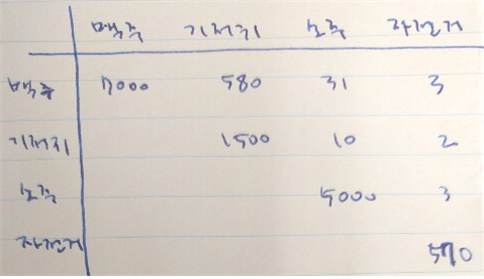 맥주 기저귀 소주 자전거
맥주 7000 580 31 3
기저귀 1500 10 2
소주 5000 3
자전거 570